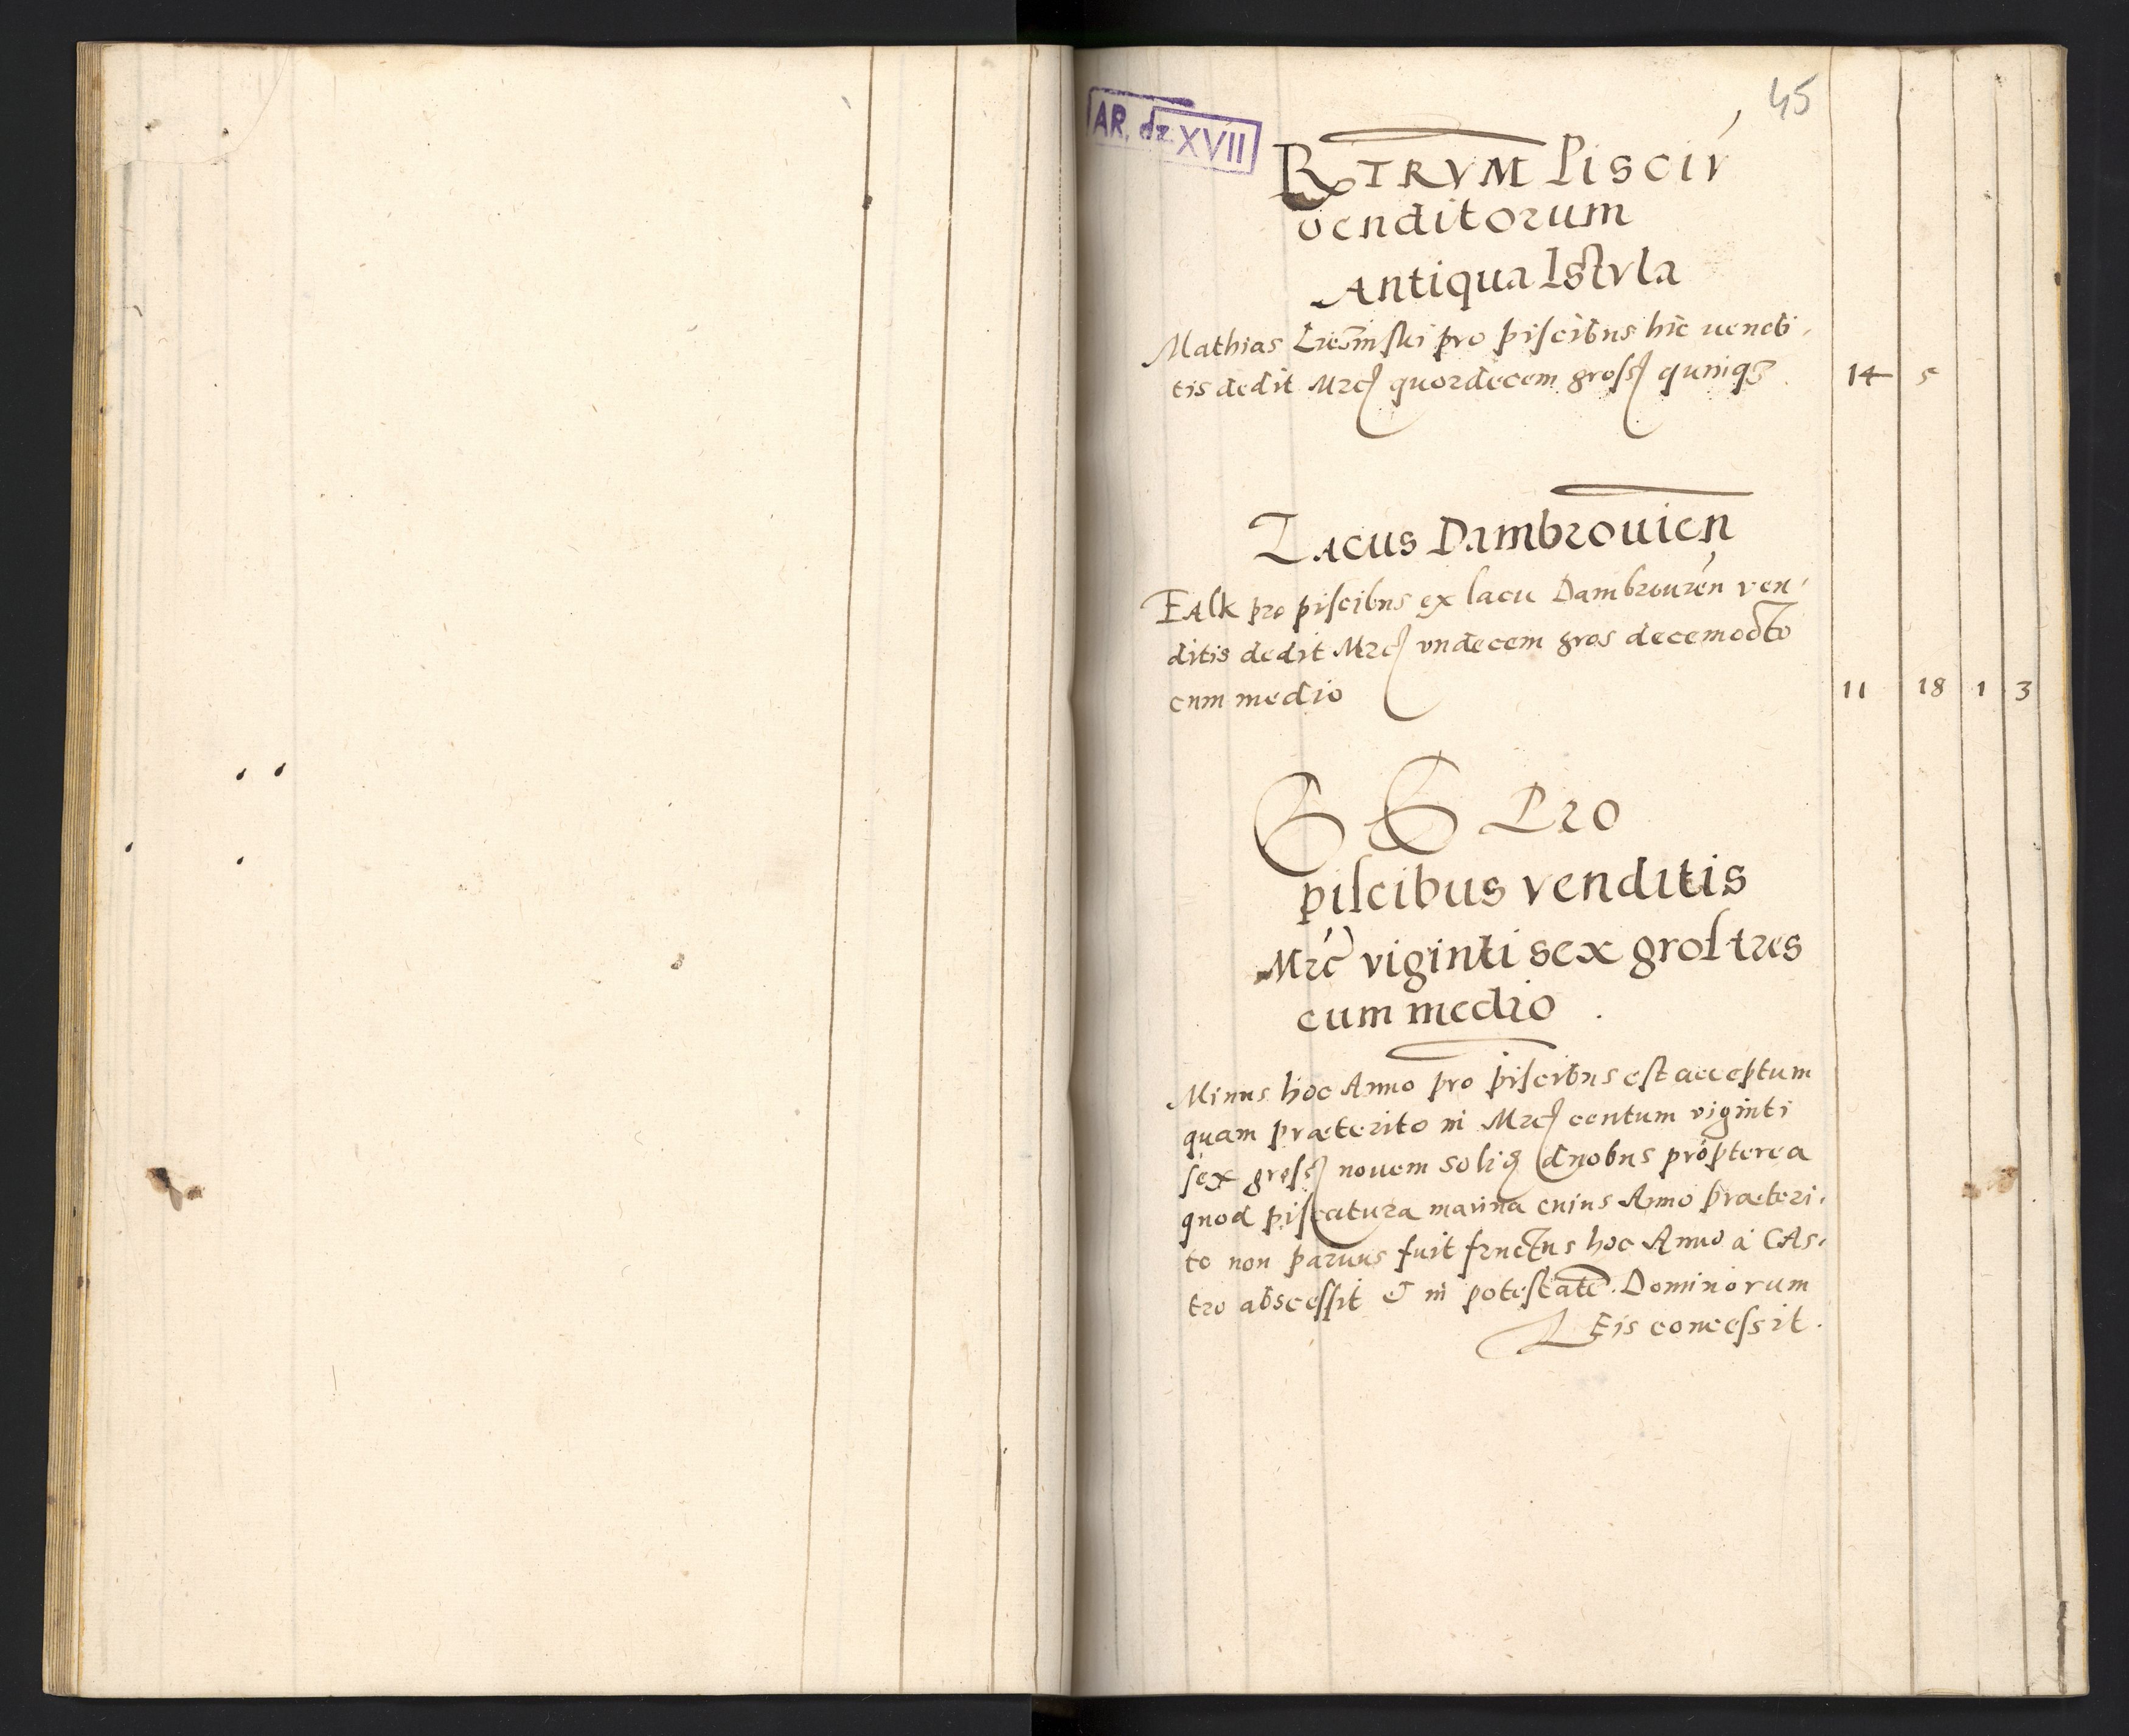 45
AR. dz. XVII
RXTRVM Pisciú
venditorum
Antiqua Istvla
Mathias pro piscibus hic vendi
tis dedit Mrc quordecem gross quinq3
14 5
Lacus Dambrouien
Falk pro piscibus ex lacu Dambrouien ven
ditis dedit Mrc vndecem gros decemocto
cum medio
11 18 1 3
Pro
piscibus venditis
Mrc viginti sex gros tres
cum medio .
Minus hoc Anno pro piscibus est acceptum
quam præterito in Mrc centum viginti
sex gross novem solid duobus propterea
quod piscatura marina cuius Anno præteri
to non paruus fuit fructus hoc Anno a CAs
tro abscessit et in potestatē Dominorum
Eis concessit.